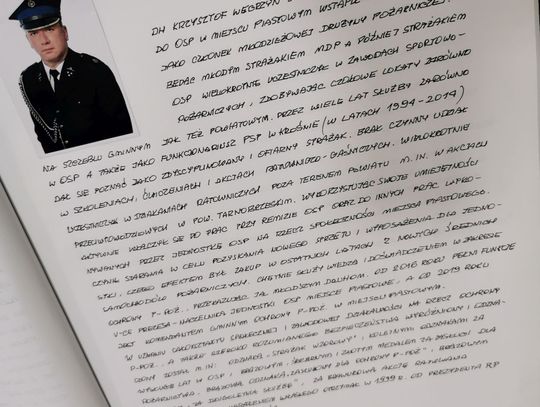 DH KRZYSZTOF WĘGRZYN
DO OSP W MIEJSCU PIASTOWYM WSTĄPIŁ
JAKO CZŁONEK MŁODZIEŻOWEJ DRUŻYNY POŻARNICZEJ.
BĘDĄC MŁODYM STRAŻAKIEM MDP A PÓŹNIEJ STRAŻAKIEM
OSP WIELOKROTNIE UCZESTNICZYŁ W ZAWODACH SPORTOWO-
POŻARNICZYCH, ZDOBYWAJĄC CZOŁOWE LOKATY ZARÓWNO
NA SZCZEBLU GMINNYM JAK TEŻ POWIATOWYM. PRZEZ WIELE LAT SŁUŻBY ZARÓWNO
W OSP A TAKŻE JAKO FUNKCJONARIUSZ PSP W KROŚNIE (W LATACH 1994-2014)
DAŁ SIĘ POZNAĆ JAKO ZDYSCYPLINOWANY I OFIARNY STRAŻAK. BRAŁ CZYNNY UDZIAŁ
W SZKOLENIACH, ĆWICZENIACH I AKCJACH RATOWNICZO-GAŚNICZYCH. WIELOKROTNIE
UCZESTNICZYŁ W DZIAŁANIACH RATOWNICZYCH POZA TERENEM POWIATU M.IN. W AKCJACH
PRZECIWPOWODZIOWYCH W POW. TARNOBRZESKIM. WYKORZYSTUJĄC SWOJE UMIEJĘTNOŚCI
AKTYWNIE WŁĄCZAŁ SIĘ DO PRAC PRZY REMIZIE OSP ORAZ DO INNYCH PRAC WYKO-
NYWANYCH PRZEZ JEDNOSTKĘ OSP NA RZECZ SPOŁECZNOŚCI MIEJSCA PIASTOWEGO.
CZYNIŁ STARANIA W CELU POZYSKANIA NOWEGO SPRZĘTU I WYPOSAŻENIA DLA JEDNO-
STKI, CZEGO EFEKTEM BYŁ ZAKUP W OSTATNICH LATACH 2 NOWYCH ŚREDNICH
SAMOCHODÓW POŻARNICZYCH. CHĘTNIE SŁUŻY WIEDZĄ I DOŚWIADCZENIEM W ZAKRESIE
OCHRONY P-POŻ., PRZEKAZUJĄC JĄ MŁODSZYM DRUHOM. OD 2016 ROKU PEŁNI FUNKCJĘ
V-CE PREZESA-NACZELNIKA JEDNOSTKI OSP MIEJSCE PIASTOWE, A OD 2019 ROKU
JEST KOMENDANTEM GMINNYM OCHRONY P-POŻ. W MIEJSCU PIASTOWYM.
W UZNANIU CAŁOKSZTAŁTU SPOŁECZNEJ I ZAWODOWEJ DZIAŁALNOŚCI NA RZECZ OCHRONY
P-POŻ., A TAKŻE SZEROKO ROZUMIANEGO BEZPIECZEŃSTWA WYRÓŻNIONY I ODZNA-
CZONY ZOSTAŁ M.IN: ODZNAKĄ „STRAŻAK WZOROWY", KOLEJNYMI ODZNAKAMI ZA
WYSŁUGĘ LAT W OSP, BRĄZOWYM, SREBRNYM I ZŁOTYM MEDALEM ZA ZASŁUGI DLA
POŻARNICTWA, BRĄZOWĄ ODZNAKĄ „ZASŁUŻONY DLA OCHRONY P-POŻ", BRĄZOWYM
ZA DŁUGOLETNIĄ SŁUŻBĘ", ZA BRAWUROWĄ AKCJĘ RATOWANIA
WŁASNEGO OTRZYMAŁ W 1999 R. OD PREZYDENTA RP